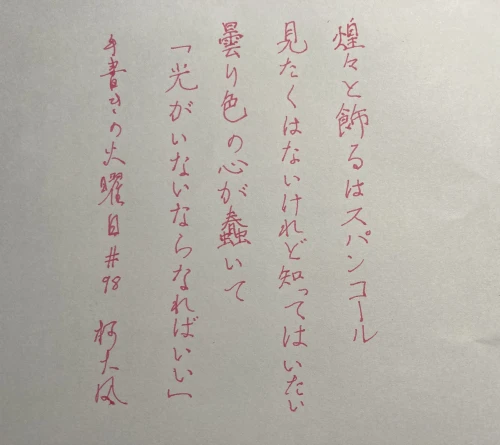 煌々と飾るはスパンコール
見たくはないけれど知ってはいたい
曇り色の心が蠢いて
「光がいないならなればいい」
手書きの火曜日#98 柊大風